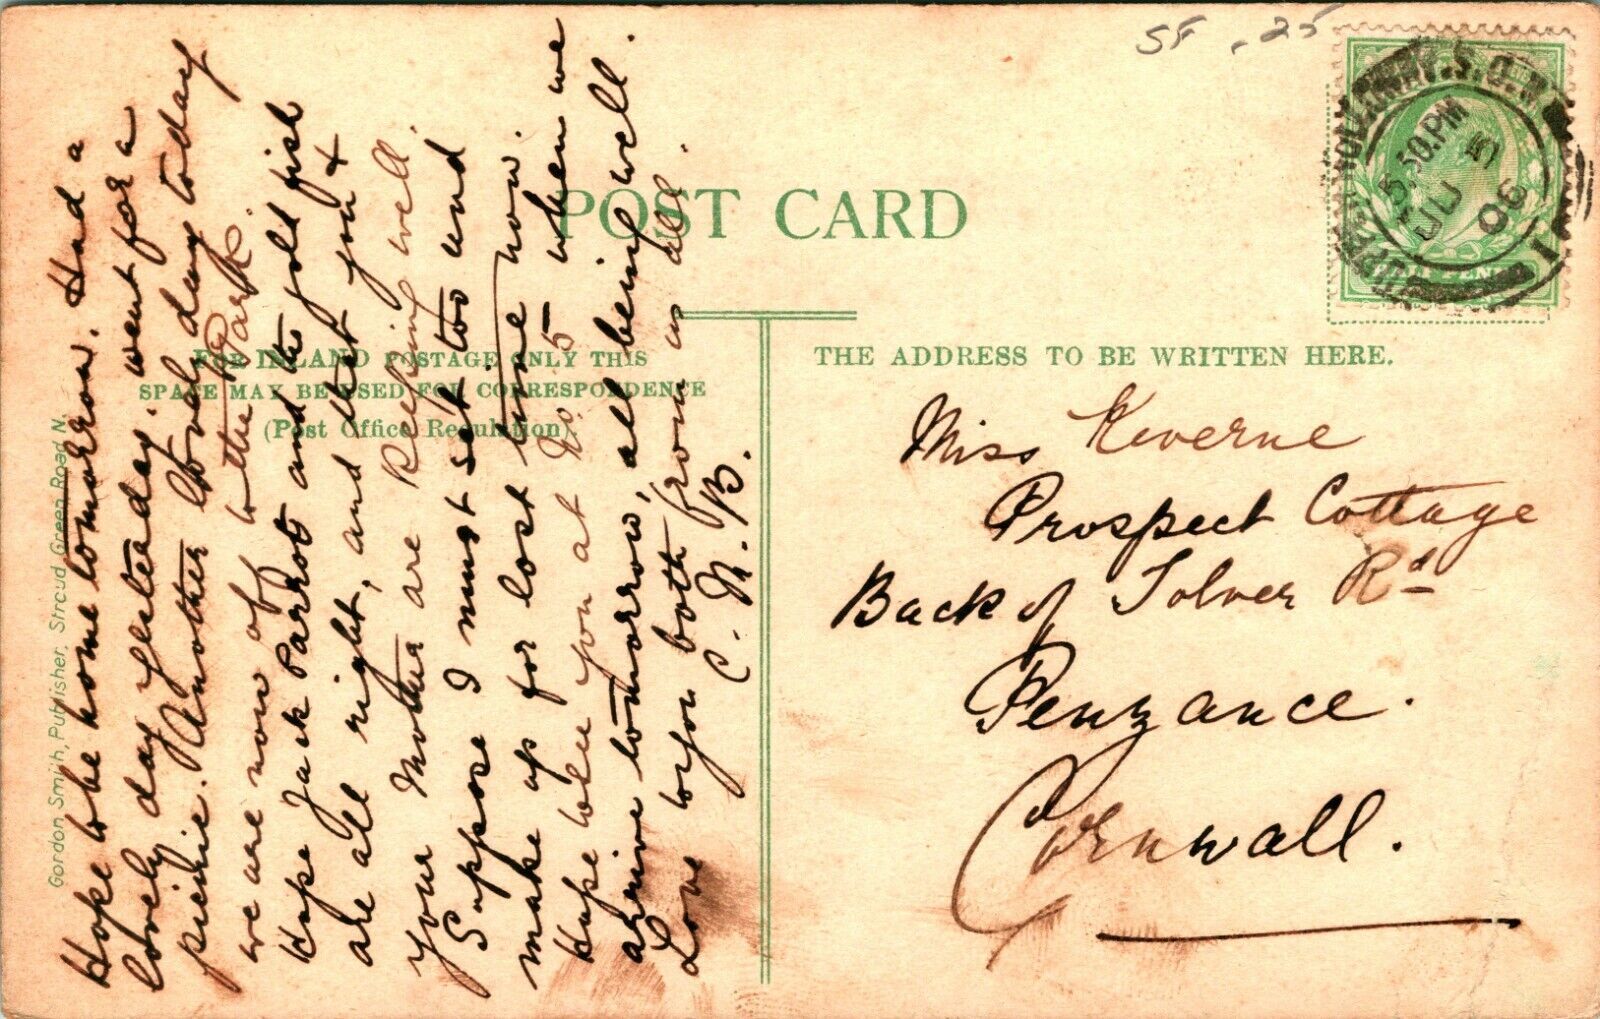 55 .25
POST CARD
FOR INLAND POSTAGE ONLY THIS
SPACE MAY BE USED FOR CORRESPONDENCE
(Post Office Regulation)
THE ADDRESS TO BE WRITTEN HERE.
Gordon Smith, Publisher, Stroud Green Road N.
Hope to be home tomorrow. Had a
lovely day yesterday, went for a
picnic. Another lovely day today
we are now off to the Park.
Hope Jack Parrot and the gold fish
are all right, and that you &
your Mother are keeping well.
Suppose I must set too and
make up for lost time now.
Hope to see you at No. 5 when we
arrive tomorrow, all being well.
Love to you both from us all.
C. M. B.
Miss Keverne
Prospect Cottage
Back of Tolver Rd
Penzance.
Cornwall.
S.O.
5.50.PM
JU 5
06
HALF PENNY